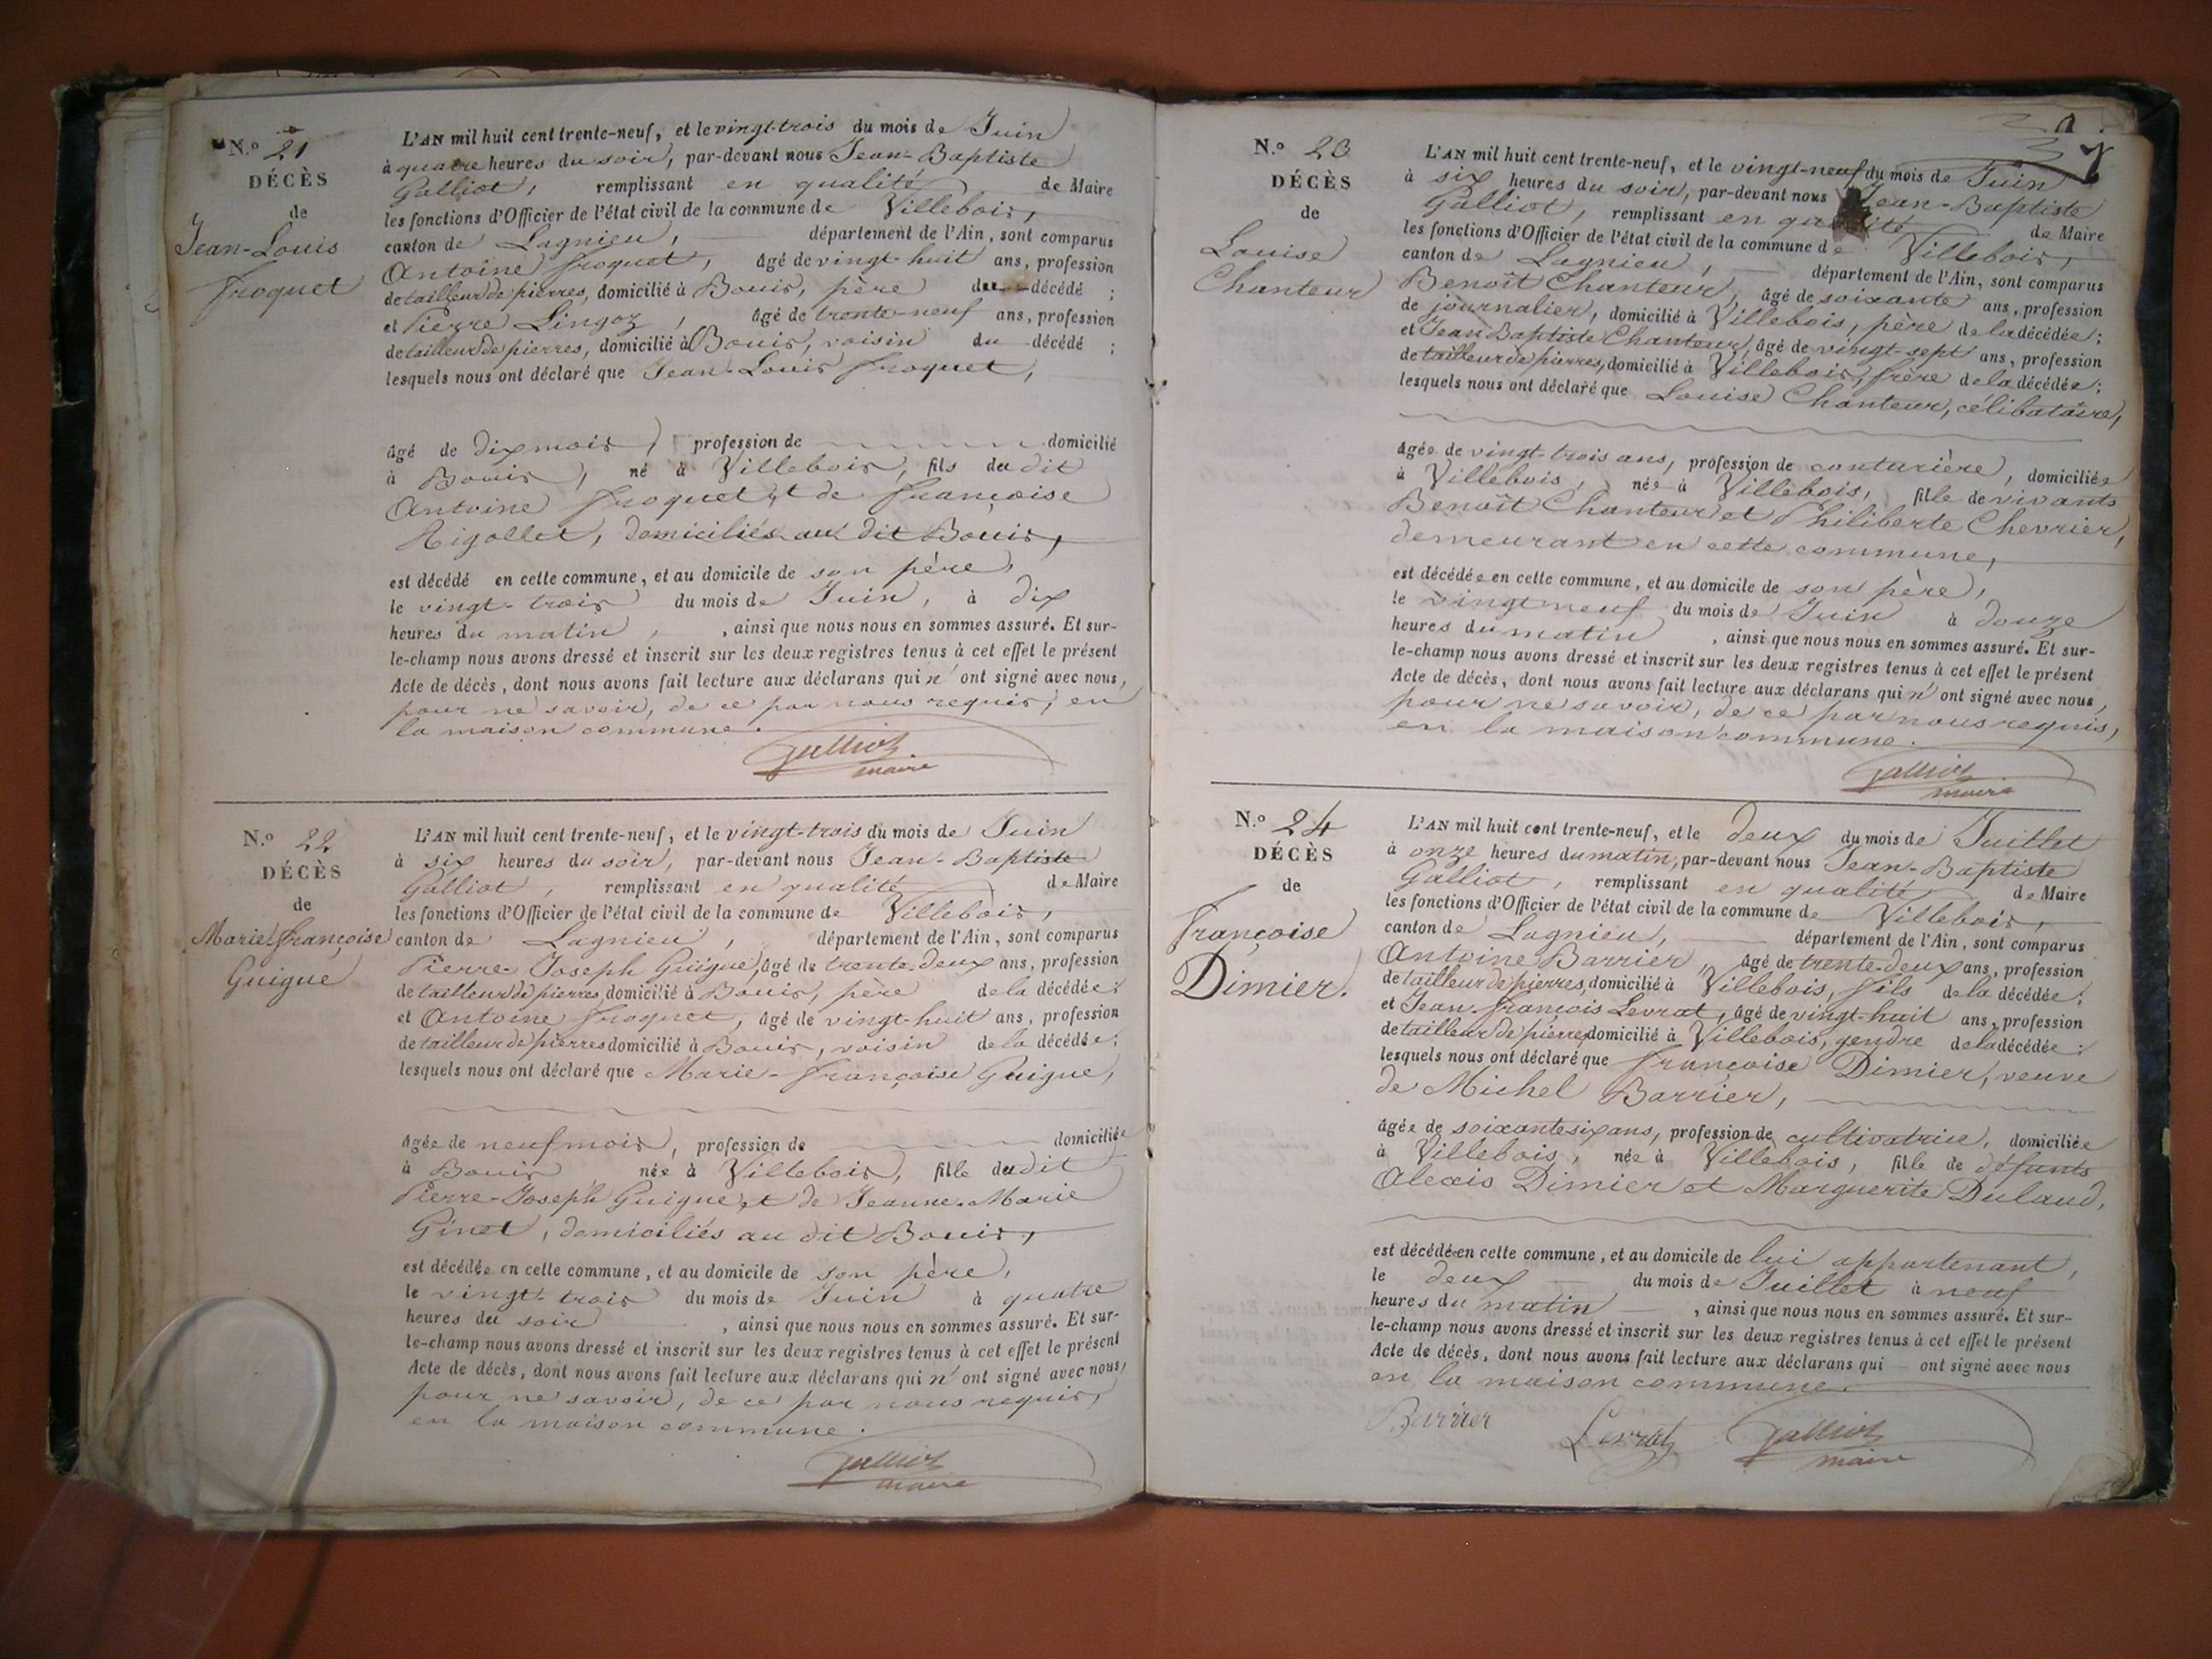 N.º 21
DÉCÈS
de
Jean-Louis
Froquet
L'AN mil huit cent trente-neuf, et le vingt-trois du mois de Juin
à quatre heures du soir, par-devant nous Jean-Baptiste
Galliot, remplissant en qualité de Maire
les fonctions d'Officier de l'état civil de la commune de Villebois,
canton de Lagnieu, département de l'Ain, sont comparus
Antoine Froquet, âgé de vingt-huit ans, profession
de tailleur de pierres, domicilié à Bouis, père du décédé ;
et Pierre Lingoz, âgé de trente-neuf ans, profession
de tailleur de pierres, domicilié à Bouis, voisin du décédé ;
lesquels nous ont déclaré que Jean-Louis Froquet,
âgé de dix mois, profession de domicilié
à Bouis, né à Villebois, fils du dit
Antoine Froquet et de Françoise
Rigollet, domiciliés au dit Bouis,
est décédé en cette commune, et au domicile de son père,
le vingt-trois du mois de Juin, à dix
heures du matin, , ainsi que nous nous en sommes assuré. Et sur-
le-champ nous avons dressé et inscrit sur les deux registres tenus à cet effet le présent
Acte de décès, dont nous avons fait lecture aux déclarans qui n'ont signé avec nous,
pour ne savoir, de ce par nous requis, en
la maison commune.
Galliot
maire
N.º 22
DÉCÈS
de
Marie-Françoise
Guigue
L'AN mil huit cent trente-neuf, et le vingt-trois du mois de Juin
à six heures du soir, par-devant nous Jean-Baptiste
Galliot, remplissant en qualité de Maire
les fonctions d'Officier de l'état civil de la commune de Villebois,
canton de Lagnieu, département de l'Ain, sont comparus
Pierre Joseph Guigue, âgé de trente-deux ans, profession
de tailleur de pierres, domicilié à Bouis, père de la décédée ;
et Antoine Froquet, âgé de vingt-huit ans, profession
de tailleur de pierres domicilié à Bouis, voisin de la décédée ;
lesquels nous ont déclaré que Marie-Françoise Guigue,
âgée de neuf mois, profession de domiciliée
à Bouis née à Villebois, fille du dit
Pierre-Joseph Guigue et de Jeanne-Marie
Ginet, domiciliés au dit Bouis,
est décédée en cette commune, et au domicile de son père,
le vingt-trois du mois de Juin à quatre
heures du soir , ainsi que nous nous en sommes assuré. Et sur-
le-champ nous avons dressé et inscrit sur les deux registres tenus à cet effet le présent
Acte de décès, dont nous avons fait lecture aux déclarans qui n'ont signé avec nous,
pour ne savoir, de ce par nous requis,
en la maison commune.
Galliot
maire
N.º 23
DÉCÈS
de
Louise
Chanteur
L'AN mil huit cent trente-neuf, et le vingt-neuf du mois de Juin
à six heures du soir, par-devant nous Jean-Baptiste
Galliot, remplissant en qualité de Maire
les fonctions d'Officier de l'état civil de la commune de Villebois,
canton de Lagnieu, département de l'Ain, sont comparus
Benoît Chanteur, âgé de soixante ans, profession
de journalier, domicilié à Villebois, père de la décédée ;
et Jean Baptiste Chanteur, âgé de vingt-sept ans, profession
de tailleur de pierres, domicilié à Villebois, frère de la décédée ;
lesquels nous ont déclaré que Louise Chanteur, célibataire,
âgée de vingt-trois ans, profession de couturière, domiciliée
à Villebois, née à Villebois, fille de vivants
Benoît Chanteur et Philiberte Chevrier,
demeurant en cette commune,
est décédée en cette commune, et au domicile de son père,
le vingt neuf du mois de Juin à douze
heures du matin , ainsi que nous nous en sommes assuré. Et sur-
le-champ nous avons dressé et inscrit sur les deux registres tenus à cet effet le présent
Acte de décès, dont nous avons fait lecture aux déclarans qui n'ont signé avec nous,
pour ne savoir, de ce par nous requis,
en la maison commune.
Galliot
maire
N.º 24
DÉCÈS
de
Françoise
Dimier.
L'AN mil huit cent trente-neuf, et le deux du mois de Juillet
à onze heures du matin, par-devant nous Jean-Baptiste
Galliot, remplissant en qualité de Maire
les fonctions d'Officier de l'état civil de la commune de Villebois,
canton de Lagnieu, département de l'Ain, sont comparus
Antoine Barrier, âgé de trente-deux ans, profession
de tailleur de pierres, domicilié à Villebois, fils de la décédée ;
et Jean-François Levrat, âgé de vingt-huit ans, profession
de tailleur de pierres domicilié à Villebois, gendre de la décédée ;
lesquels nous ont déclaré que Françoise Dimier, veuve
de Michel Barrier,
âgée de soixante six ans, profession de cultivatrice, domiciliée
à Villebois, née à Villebois, fille de défunts
Alexis Dimier et Marguerite Dulaud,
est décédée en cette commune, et au domicile de lui appartenant,
le deux du mois de Juillet à neuf
heures du matin , ainsi que nous nous en sommes assuré. Et sur-
le-champ nous avons dressé et inscrit sur les deux registres tenus à cet effet le présent
Acte de décès, dont nous avons fait lecture aux déclarans qui ont signé avec nous
en la maison commune.
Barrier Levrat Galliot
maire